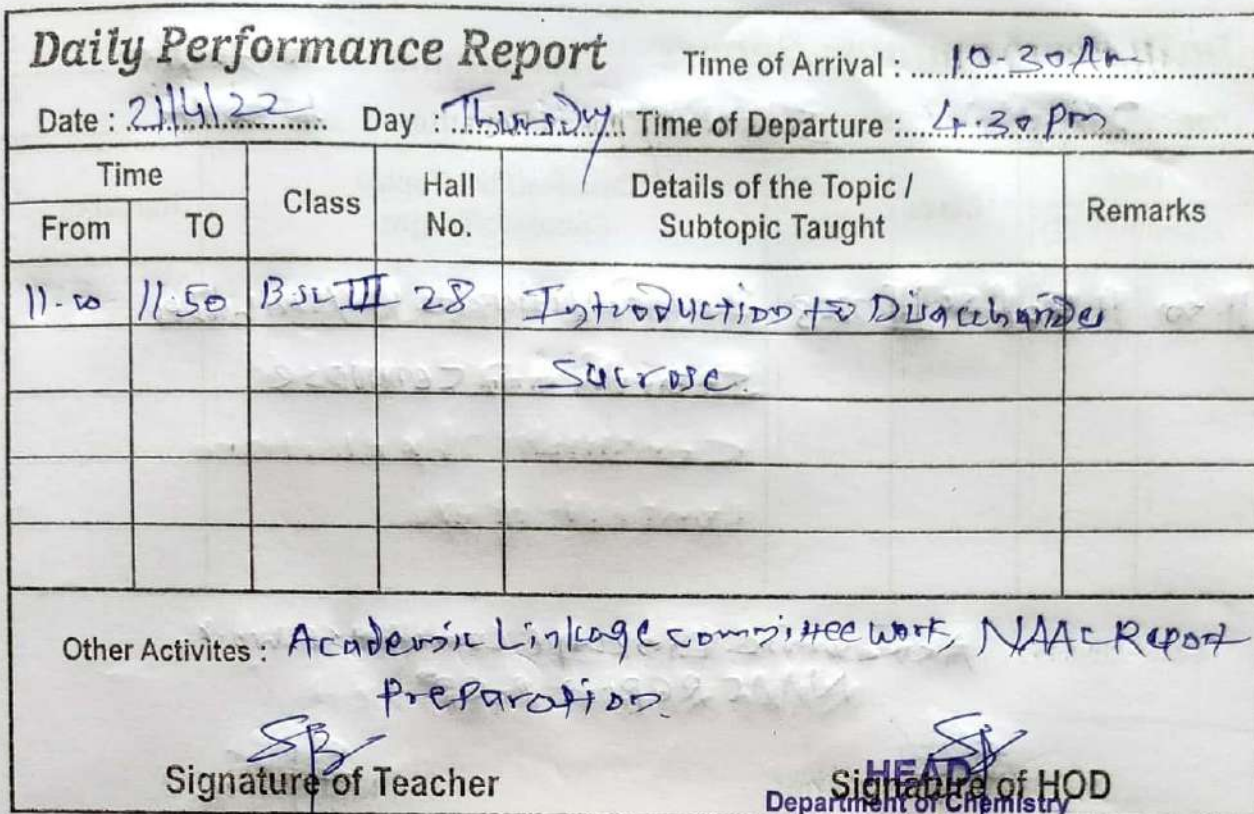 Daily Performance Report Time of Arrival : 10.30 Am
Date : 21/4/22 Day : Thursday Time of Departure : 4.30 pm
Time Class Hall No. Details of the Topic / Subtopic Taught Remarks
From TO
11.00 11.50 BSc III 28 Introduction to Disaccharides
Sucrose.
Other Activites : Academic Linkage committee work, NAAC Report
preparation.
Signature of Teacher Signature of HOD
HEAD
Department of Chemistry